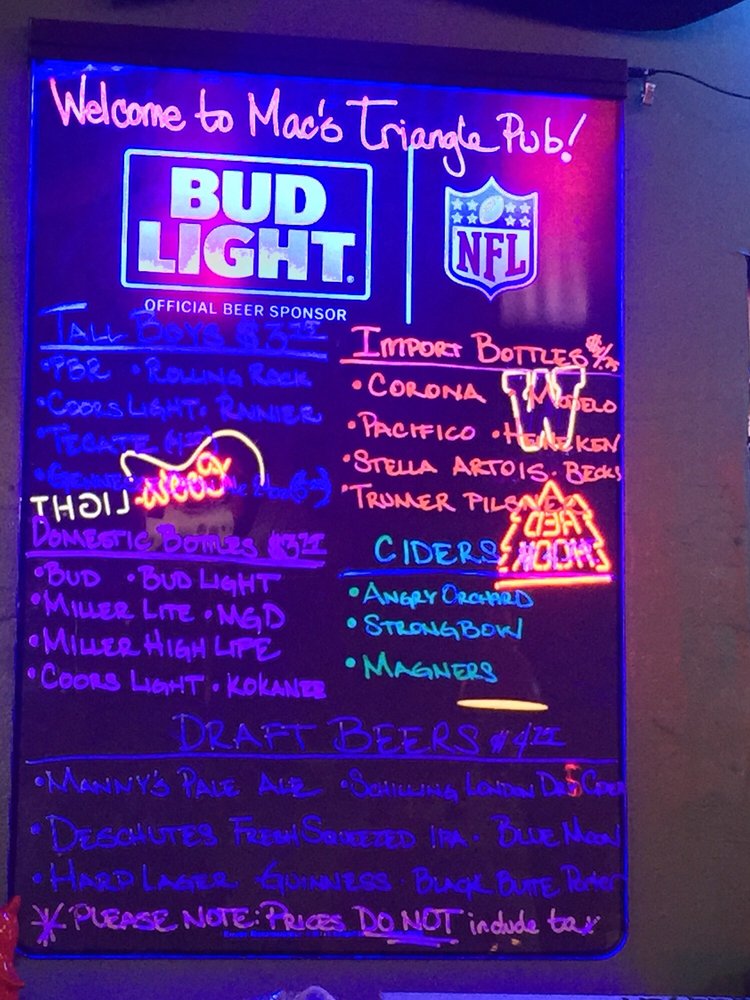 Welcome to Mac's Triangle Pub!
BUD LIGHT.
OFFICIAL BEER SPONSOR
NFL
TALL BOYS $3.25
• PBR • ROLLING ROCK
• COORS LIGHT • RAINIER
• TECATE
Coors
LIGHT
DOMESTIC BOTTLES $3.75
• BUD • BUD LIGHT
• MILLER LITE • MGD
• MILLER HIGH LIFE
• COORS LIGHT • KOKANEE
IMPORT BOTTLES
• CORONA • MODELO
W
• PACIFICO • HEINEKEN
• STELLA ARTOIS • BECKS
• TRUMER PILSNER
RED
HOOK
CIDERS
• ANGRY ORCHARD
• STRONGBOW
• MAGNERS
DRAFT BEERS
• MANNY'S PALE ALE • SCHILLING LONDON DRY CIDER
• DESCHUTES FRESH SQUEEZED IPA • BLUE MOON
• HARD LAGER • GUINNESS • BLACK BUTTE PORTER
* PLEASE NOTE: PRICES DO NOT include tax *